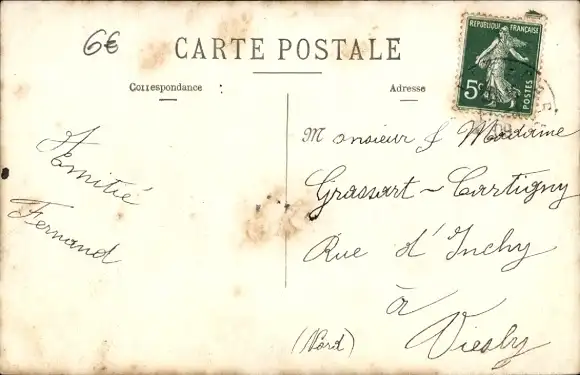 6€
CARTE POSTALE
Correspondance :
Adresse
RÉPUBLIQUE FRANÇAISE
5c
POSTES
Amitié
Fernand
Monsieur & Madame
Grassart-Cartigny
Rue d'Inchy
à
Viesly
(Nord)